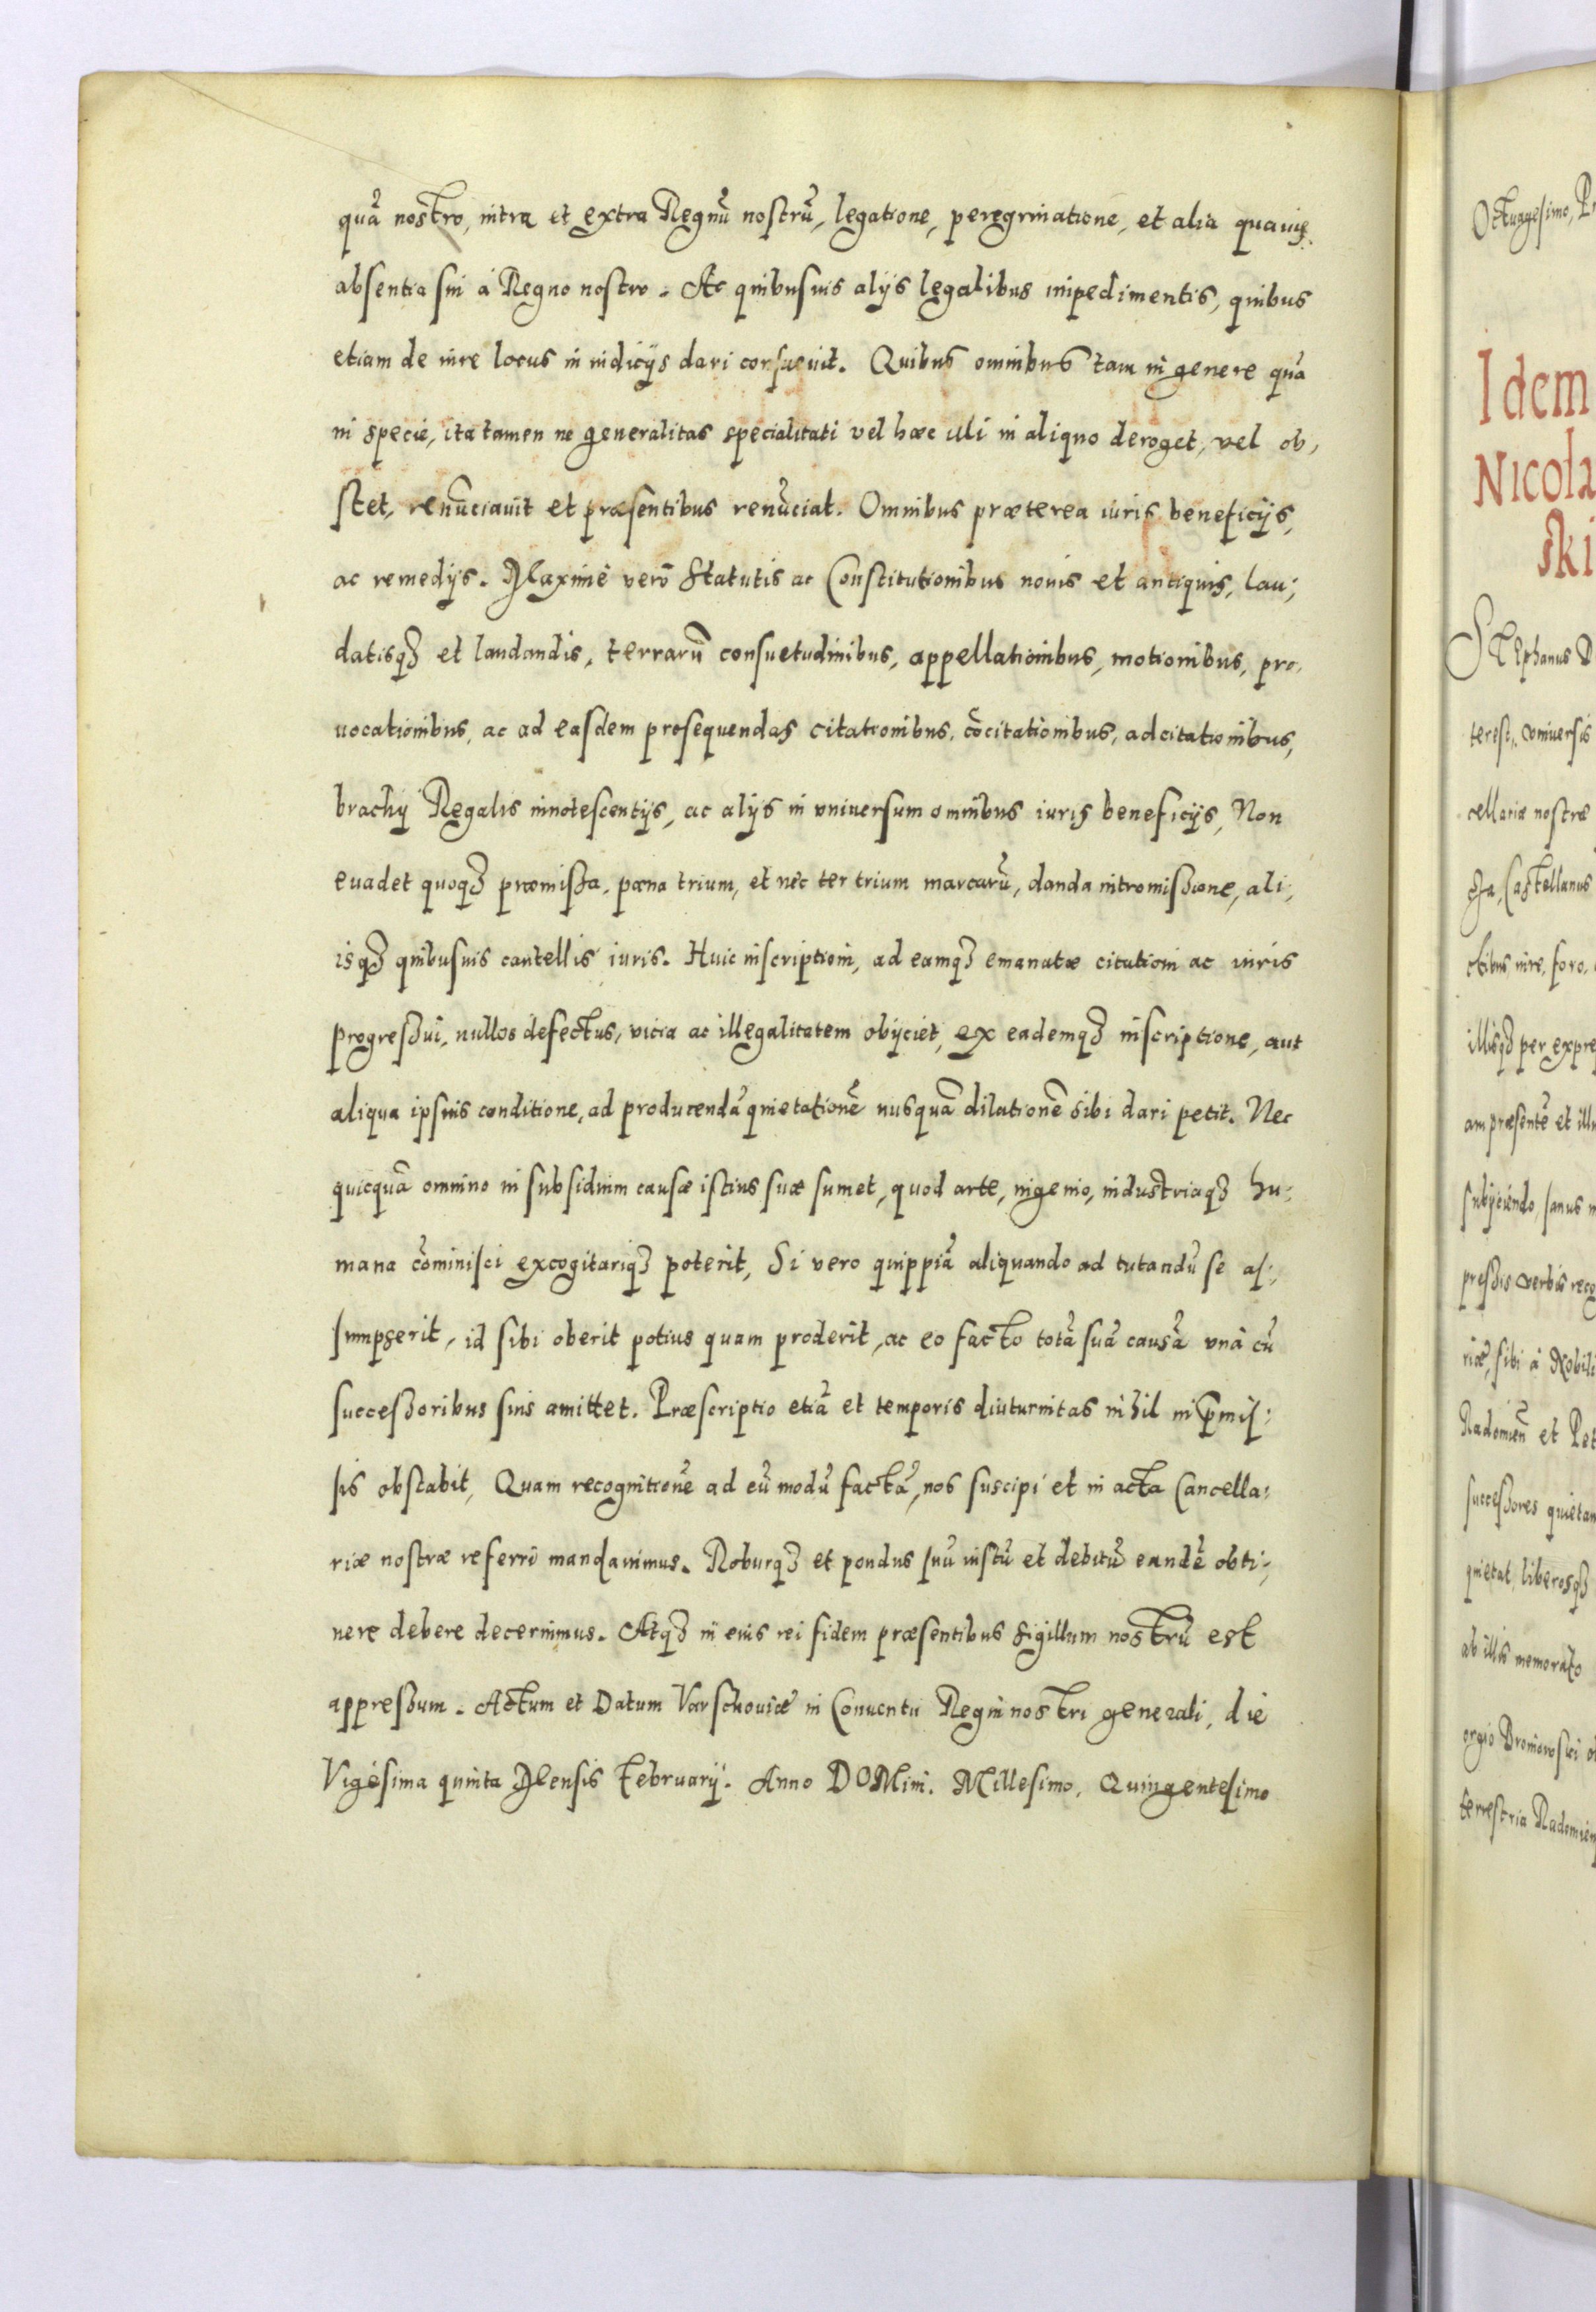 quã nostro, intra et extra Regnũ nostrũ, legatione, peregrinatione, et alia quauis
absentia sui à Regno nostro. Ac quibusuis alijs legalibus impedimentis, quibus
etiam de iure locus in iudicijs dari consueuit. Quibus omnibus tam in genere quã
in specie, ita tamen ne generalitas specialitati vel hæc illi in aliquo deroget, vel ob,
stet, renũciauit et præsentibus renũciat. Omnibus præterea iuris beneficijs,
ac remedijs. Maximè verò Statutis ac Constitutionibus nouis et antiquis, lau;
datisqȝ et laudandis, terrarũ consuetudinibus, appellationibus, motionibus, pro,
uocationibus, ac ad easdem prosequendas citationibus, cõcitationibus, adcitationibus,
brachij Regalis innotescentijs, ac alijs in vniuersum omnibus iuris beneficijs, Non
euadet quoqȝ præmissa, pæna trium, et nec ter trium marcarũ, danda intromissione, ali;
isqȝ quibusuis cautellis iuris. Huic inscriptioni, ad eamqȝ emanatæ citationi ac iuris
progressui, nullos defectus, vicia ac illegalitatem obijciet, ex eademqȝ inscriptione, aut
aliqua ipsius conditione, ad producendã quietationẽ nusquã dilationẽ sibi dari petit. Nec
quicquã omnino in subsidium causæ istius suæ sumet, quod arte, ingenio, industriaqȝ hu:
mana cõminisci excogitariqȝ poterit, Si vero quippiã aliquando ad tutandũ se as;
sumpserit, id sibi oberit potius quam proderit, ac eo facto totã suã causã vnà cũ
successoribus suis amittet. Præscriptio etiã et temporis diuturnitas nihil in p̃mis:
sis obstabit, Quam recognitionẽ ad eũ modũ factã, nos suscipi et in acta Cancella:
riæ nostræ referri mandauimus. Roburqȝ et pondus suũ iustũ et debitũ eandẽ obti;
nere debere decernimus. Atqȝ in eius rei fidem præsentibus sigillum nostrũ est
appressum. Actum et Datum Varschouiæ in Conuentu Regni nostri generali, die
Vigesima quinta Mensis Februarij. Anno DOMini. Millesimo, Quingentesimo
Octuagesimo,
Idem
Nicola
ski
Stephanus D
terest, vniuersis
cellariæ nostræ
Castellanus
ctibus iure, foro,
illisqȝ per expre
am præsentẽ et illu
subijciendo, sanus m
pressis verbis reco
riæ, sibi à Nobili
Radomieñ et Pet
successores quietan
quietat, liberosqȝ
ab illis memorato
orgio Broniowski
terrestria Radomien